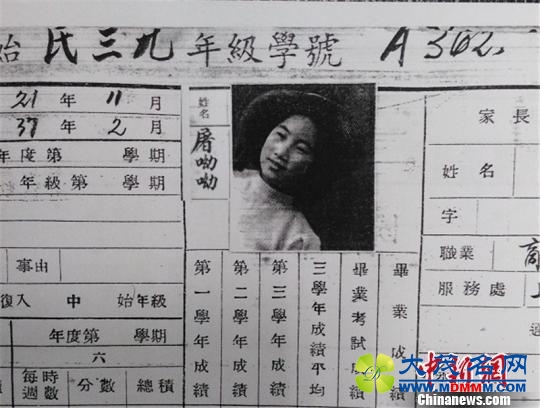 始 民三九 年級學號 A302
21 年 11 月
37 年 2 月
年度第 學期
年級第 學期
事由
復入 中 始年級
年度第 學期
六
每週時數 分數 總積
姓名 屠呦呦
第一學年成績
第二學年成績
第三學年成績
三學年成績平均
畢業考試成績
畢業成績
家長
姓名
字
職業 商
服務處 上
大茂名网
WWW.MDMMM.COM
中新网
Chinanews.com